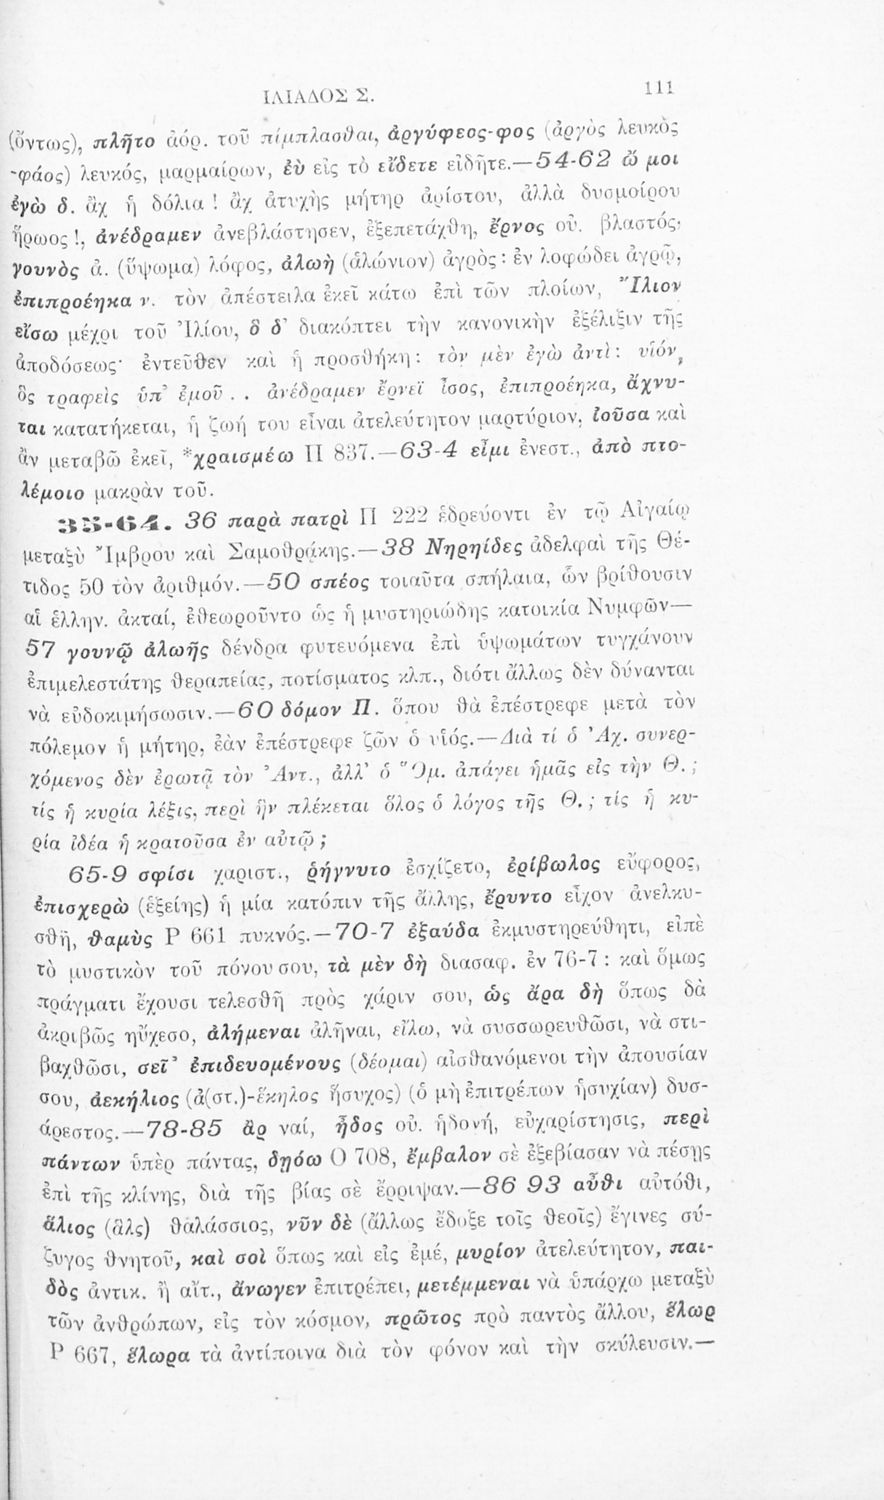 ΙΛΙΑΔΟΣ Σ. 111
(ὄντως), πλῆτο ἀόρ. τοῦ πίμπλασθαι, ἀργύφεος-φος (ἀργὸς λευκὸς
-φάος) λευκός, μαρμαίρων, ἐὺ εἰς τὸ εἴδετε εἰδῆτε.—54-62 ὤ μοι
ἐγὼ δ. ἂχ ἡ δόλια! ἂχ ἀτυχὴς μήτηρ ἀρίστου, ἀλλὰ δυσμοίρου
ἥρωος!, ἀνέδραμεν ἀνεβλάστησεν, ἐξεπετάχθη, ἔρνος οὐ. βλαστός·
γουνὸς ἀ. (ὕψωμα) λόφος, ἀλωὴ (ἁλώνιον) ἀγρὸς: ἐν λοφώδει ἀγρῷ,
ἐπιπροέηκα ν. τὸν ἀπέστειλα ἐκεῖ κάτω ἐπὶ τῶν πλοίων, Ἴλιον
εἴσω μέχρι τοῦ Ἰλίου, ὃ δ' διακόπτει τὴν κανονικὴν ἐξέλιξιν τῆς
ἀποδόσεως· ἐντεῦθεν καὶ ἡ προσθήκη: τὸν μὲν ἐγὼ ἀντὶ: υἱόν,
ὃς τραφεὶς ὑπ' ἐμοῦ . . ἀνέδραμεν ἔρνεϊ ἶσος, ἐπιπροέηκα, ἄχνυ-
ται κατατήκεται, ἡ ζωή του εἶναι ἀτελεύτητον μαρτύριον, ἰοῦσα καὶ
ἂν μεταβῶ ἐκεῖ, *χραισμέω Π 837.—63-4 εἶμι ἐνεστ., ἀπὸ πτο-
λέμοιο μακρὰν τοῦ.
35-64. 36 παρὰ πατρὶ Π 222 ἑδρεύοντι ἐν τῷ Αἰγαίῳ
μεταξὺ Ἴμβρου καὶ Σαμοθράκης.—38 Νηρηίδες ἀδελφαὶ τῆς Θέ-
τιδος 50 τὸν ἀριθμόν.—50 σπέος τοιαῦτα σπήλαια, ὧν βρίθουσιν
αἱ ἑλλην. ἀκταί, ἐθεωροῦντο ὡς ἡ μυστηριώδης κατοικία Νυμφῶν—
57 γουνῷ ἀλωῆς δένδρα φυτευόμενα ἐπὶ ὑψωμάτων τυγχάνουν
ἐπιμελεστάτης θεραπείας, ποτίσματος κλπ., διότι ἄλλως δὲν δύνανται
νὰ εὐδοκιμήσωσιν.—60 δόμον Π. ὅπου θὰ ἐπέστρεφε μετὰ τὸν
πόλεμον ἡ μήτηρ, ἐὰν ἐπέστρεφε ζῶν ὁ υἱός.—Διὰ τί ὁ Ἀχ. συνερ-
χόμενος δὲν ἐρωτᾷ τὸν Ἀντ., ἀλλ' ὁ Ὅμ. ἀπάγει ἡμᾶς εἰς τὴν Θ.;
τίς ἡ κυρία λέξις, περὶ ἣν πλέκεται ὅλος ὁ λόγος τῆς Θ.; τίς ἡ κυ-
ρία ἰδέα ἡ κρατοῦσα ἐν αὐτῷ;
65-9 σφίσι χαριστ., ῥήγνυτο ἐσχίζετο, ἐρίβωλος εὔφορος,
ἐπισχερὼ (ἑξείης) ἡ μία κατόπιν τῆς ἄλλης, ἔρυντο εἶχον ἀνελκυ-
σθῆ, θαμὺς Ρ 661 πυκνός.—70-7 ἐξαύδα ἐκμυστηρεύθητι, εἰπὲ
τὸ μυστικὸν τοῦ πόνου σου, τὰ μὲν δὴ διασαφ. ἐν 76-7: καὶ ὅμως
πράγματι ἔχουσι τελεσθῆ πρὸς χάριν σου, ὡς ἄρα δὴ ὅπως δὰ
ἀκριβῶς ηὔχεσο, ἀλήμεναι ἀλῆναι, εἴλω, νὰ συσσωρευθῶσι, νὰ στι-
βαχθῶσι, σεῖ' ἐπιδευομένους (δέομαι) αἰσθανόμενοι τὴν ἀπουσίαν
σου, ἀεκήλιος (ἀ(στ.)-ἕκηλος ἥσυχος) (ὁ μὴ ἐπιτρέπων ἡσυχίαν) δυσ-
άρεστος.—78-85 ἂρ ναί, ἦδος οὐ. ἡδονή, εὐχαρίστησις, περὶ
πάντων ὑπὲρ πάντας, δῃόω Ο 708, ἔμβαλον σὲ ἐξεβίασαν νὰ πέσῃς
ἐπὶ τῆς κλίνης, διὰ τῆς βίας σὲ ἔρριψαν.—86 93 αὖθι αὐτόθι,
ἅλιος (ἃλς) θαλάσσιος, νῦν δὲ (ἄλλως ἔδοξε τοῖς θεοῖς) ἔγινες σύ-
ζυγος θνητοῦ, καὶ σοὶ ὅπως καὶ εἰς ἐμέ, μυρίον ἀτελεύτητον, παι-
δὸς ἀντικ. ἢ αἴτ., ἄνωγεν ἐπιτρέπει, μετέμμεναι νὰ ὑπάρχω μεταξὺ
τῶν ἀνθρώπων, εἰς τὸν κόσμον, πρῶτος πρὸ παντὸς ἄλλου, ἕλωρ
Ρ 667, ἕλωρα τὰ ἀντίποινα διὰ τὸν φόνον καὶ τὴν σκύλευσιν.—